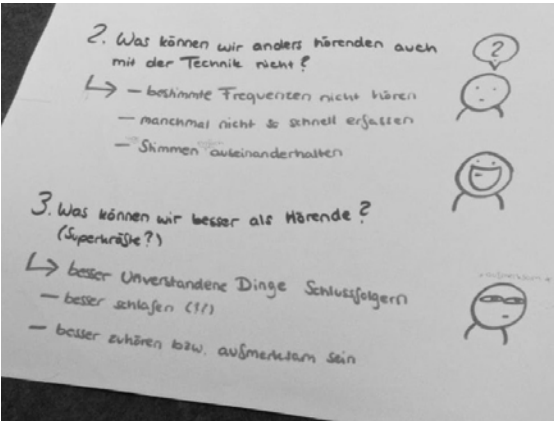 2. Was können wir anders hörenden auch
mit der Technik nicht?
?
↳ – bestimmte Frequenzen nicht hören
– manchmal nicht so schnell erfassen
– Stimmen auseinanderhalten
3. Was können wir besser als Hörende?
(Superkräfte?)
↳ besser Unverstandene Dinge Schlussfolgern
– besser schlafen (!!)
– besser zuhören bzw. aufmerksam sein